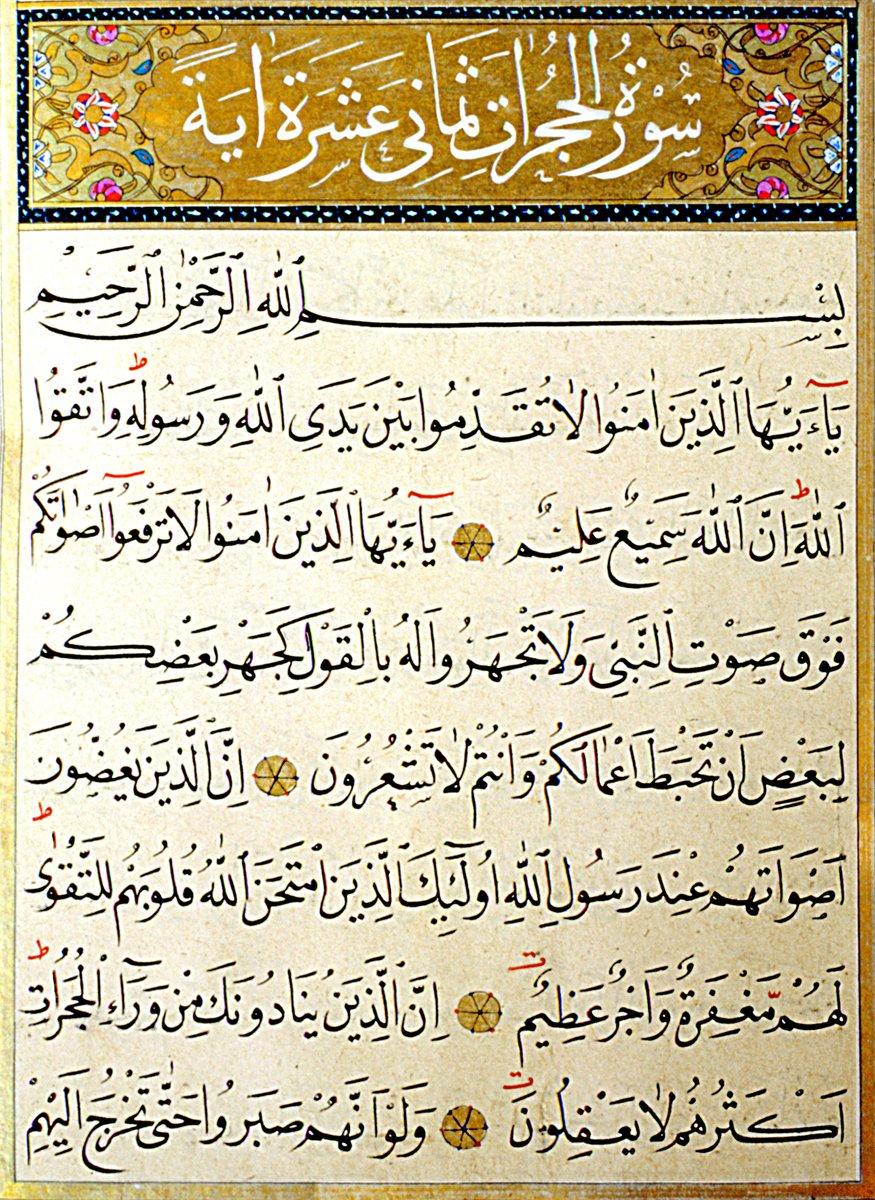 سُورَةُ الْحُجُرَاتِ ثَمَانِي عَشَرَةَ اٰيَةً
بِسْمِ ٱللّٰهِ ٱلرَّحْمٰنِ ٱلرَّحِيمِ
يَاءَيُّهَا ٱلَّذِينَ اٰمَنُوا لَا تُقَدِّمُوا بَيْنَ يَدَىِ ٱللّٰهِ وَرَسُولِهِ ط وَاتَّقُوا
ٱللّٰهَ ط اِنَّ ٱللّٰهَ سَمِيعٌ عَلِيمٌ ۝ يَاءَيُّهَا ٱلَّذِينَ اٰمَنُوا لَا تَرْفَعُوٓا اَصْوَاتَكُمْ
فَوْقَ صَوْتِ ٱلنَّبِىِّ وَلَا تَجْهَرُوا لَهُ بِالْقَوْلِ كَجَهْرِ بَعْضِكُمْ
لِبَعْضٍ اَنْ تَحْبَطَ اَعْمَالُكُمْ وَاَنْتُمْ لَا تَشْعُرُونَ ۝ اِنَّ ٱلَّذِينَ يَغُضُّونَ
اَصْوَاتَهُمْ عِنْدَ رَسُولِ ٱللّٰهِ اُولٰٓئِكَ ٱلَّذِينَ امْتَحَنَ ٱللّٰهُ قُلُوبَهُمْ لِلتَّقْوٰى ط
لَهُمْ مَغْفِرَةٌ وَاَجْرٌ عَظِيمٌ ۝ اِنَّ ٱلَّذِينَ يُنَادُونَكَ مِنْ وَرَٓاءِ الْحُجُرَاتِ ط
اَكْثَرُهُمْ لَا يَعْقِلُونَ ۝ وَلَوْ اَنَّهُمْ صَبَرُوا حَتّٰى تَخْرُجَ اِلَيْهِمْ